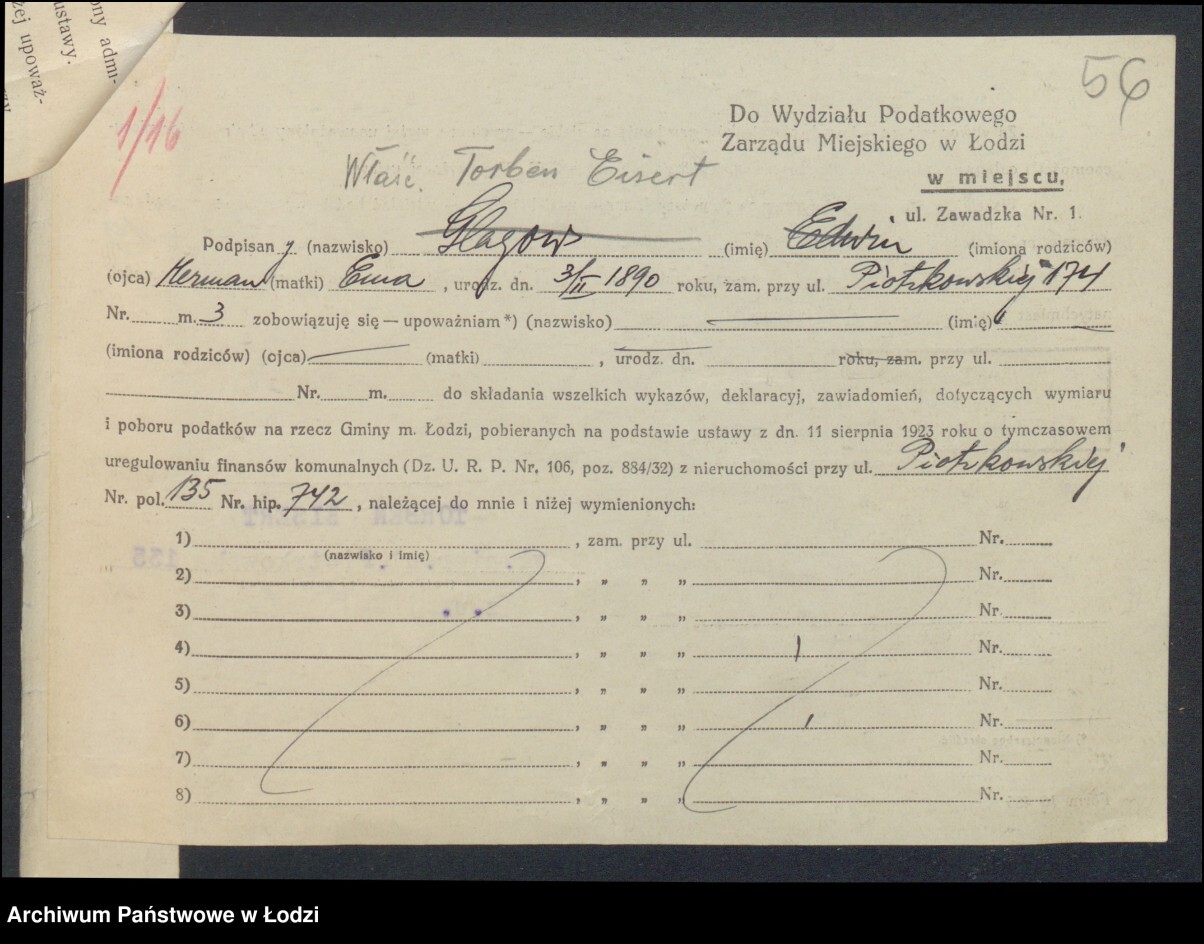 ony admi-
ustawy.
zej upoważ-
56
1/16
Do Wydziału Podatkowego
Zarządu Miejskiego w Łodzi
w miejscu,
ul. Zawadzka Nr. 1.
Właśc. Torben Eisert
Podpisany (nazwisko) Glagow (imię) Edwin (imiona rodziców)
(ojca) Herman (matki) Ema, urodz. dn. 3/II 1890 roku, zam. przy ul. Piotrkowskiej 174
Nr. m. 3 zobowiązuję się — upoważniam*) (nazwisko) (imię)
(imiona rodziców) (ojca) (matki), urodz. dn. roku, zam. przy ul.
Nr. m. do składania wszelkich wykazów, deklaracyj, zawiadomień, dotyczących wymiaru
i poboru podatków na rzecz Gminy m. Łodzi, pobieranych na podstawie ustawy z dn. 11 sierpnia 1923 roku o tymczasowem
uregulowaniu finansów komunalnych (Dz. U. R. P. Nr. 106, poz. 884/32) z nieruchomości przy ul. Piotrkowskiej
Nr. pol. 135 Nr. hip. 742, należącej do mnie i niżej wymienionych:
1) , zam. przy ul. Nr.
(nazwisko i imię)
2) , „ „ „ Nr.
3) , „ „ „ Nr.
4) , „ „ „ Nr.
5) , „ „ „ Nr.
6) , „ „ „ Nr.
7) , „ „ „ Nr.
8) , „ „ „ Nr.
Archiwum Państwowe w Łodzi